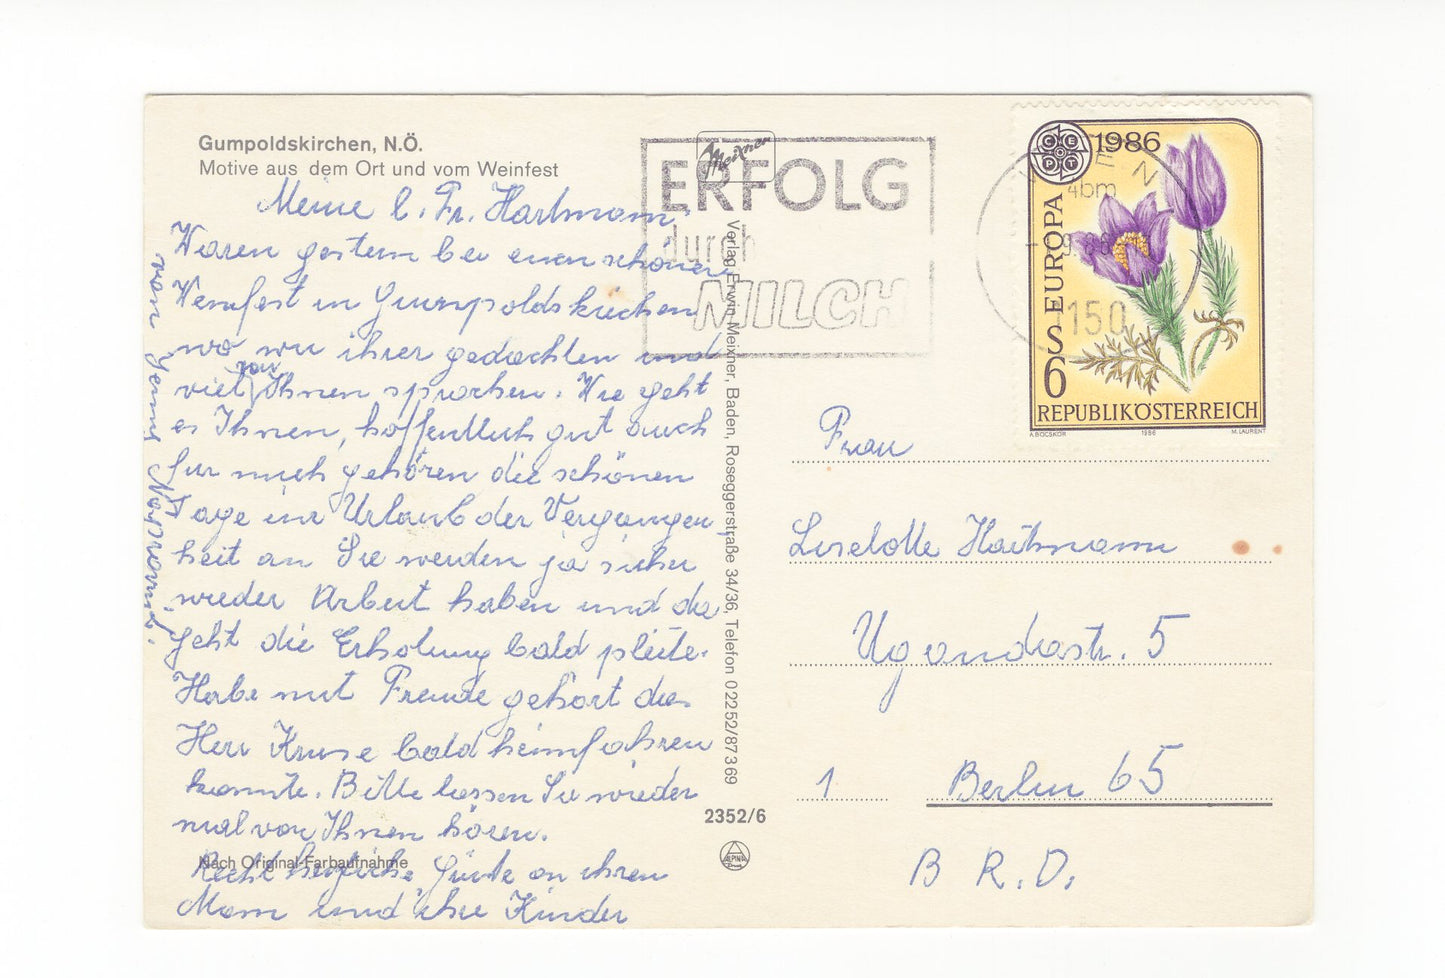 Gumpoldskirchen, N.Ö.
Motive aus dem Ort und vom Weinfest
Meine l. Fr. Hartmann
Waren gestern bei einen schönen
Weinfest in Gumpoldskirchen
wo wir ihrer gedachten und
viel von Ihnen sprachen. Wie geht
es Ihnen, hoffentlich gut auch
für mich gehören die schönen
Tage im Urlaub der Vergangen
heit an Sie werden ja sicher
wieder Arbeit haben und da
geht die Erholung bald pleite.
Habe mit Freude gehört das
Herr Kruse bald heimfahren
konnte. Bitte lassen Sie wieder
mal von Ihnen hören.
Recht herzliche Grüße an ihren
Mann und ihre Kinder
von Jenny
Nach Original-Farbaufnahme
Meixner
ERFOLG
durch
MILCH
Verlag Erwin Meixner, Baden, Roseggerstraße 34/36, Telefon 02252/87369
2352/6
ALPINA
WIEN
1150
CEPT
1986
EUROPA
S 6
REPUBLIK ÖSTERREICH
A.BÖCSKÖR 1986 M.LAURENT
Frau
Liselotte Hartmann
Ugandastr. 5
1 Berlin 65
B R.D.